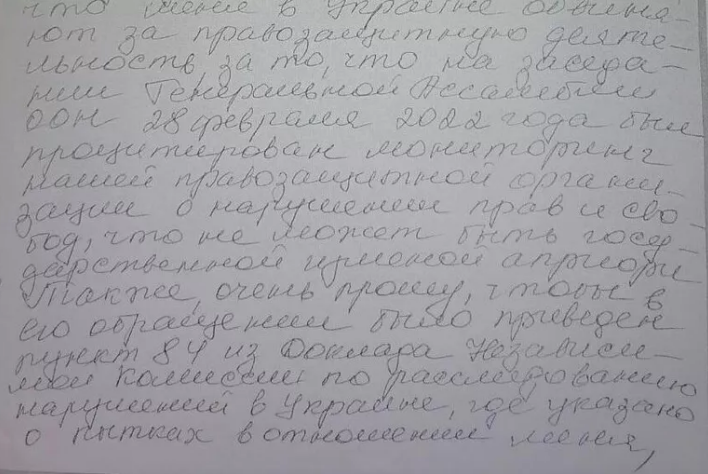 что меня в Украине обвиня-
ют за правозащитную деяте-
льность, за то, что на заседа-
нии Генеральной Ассамблеи
ООН 28 февраля 2022 года был
процитирован мониторинг
нашей правозащитной органи-
зации о нарушении прав и сво-
бод, что не может быть госу-
дарственной изменой априори
Также, очень прошу, чтобы в
его обращении было приведен
пункт 84 из Доклада Независи-
мой Комиссии по расследованию
нарушений в Украине, где указано
о пытках в отношении меня,